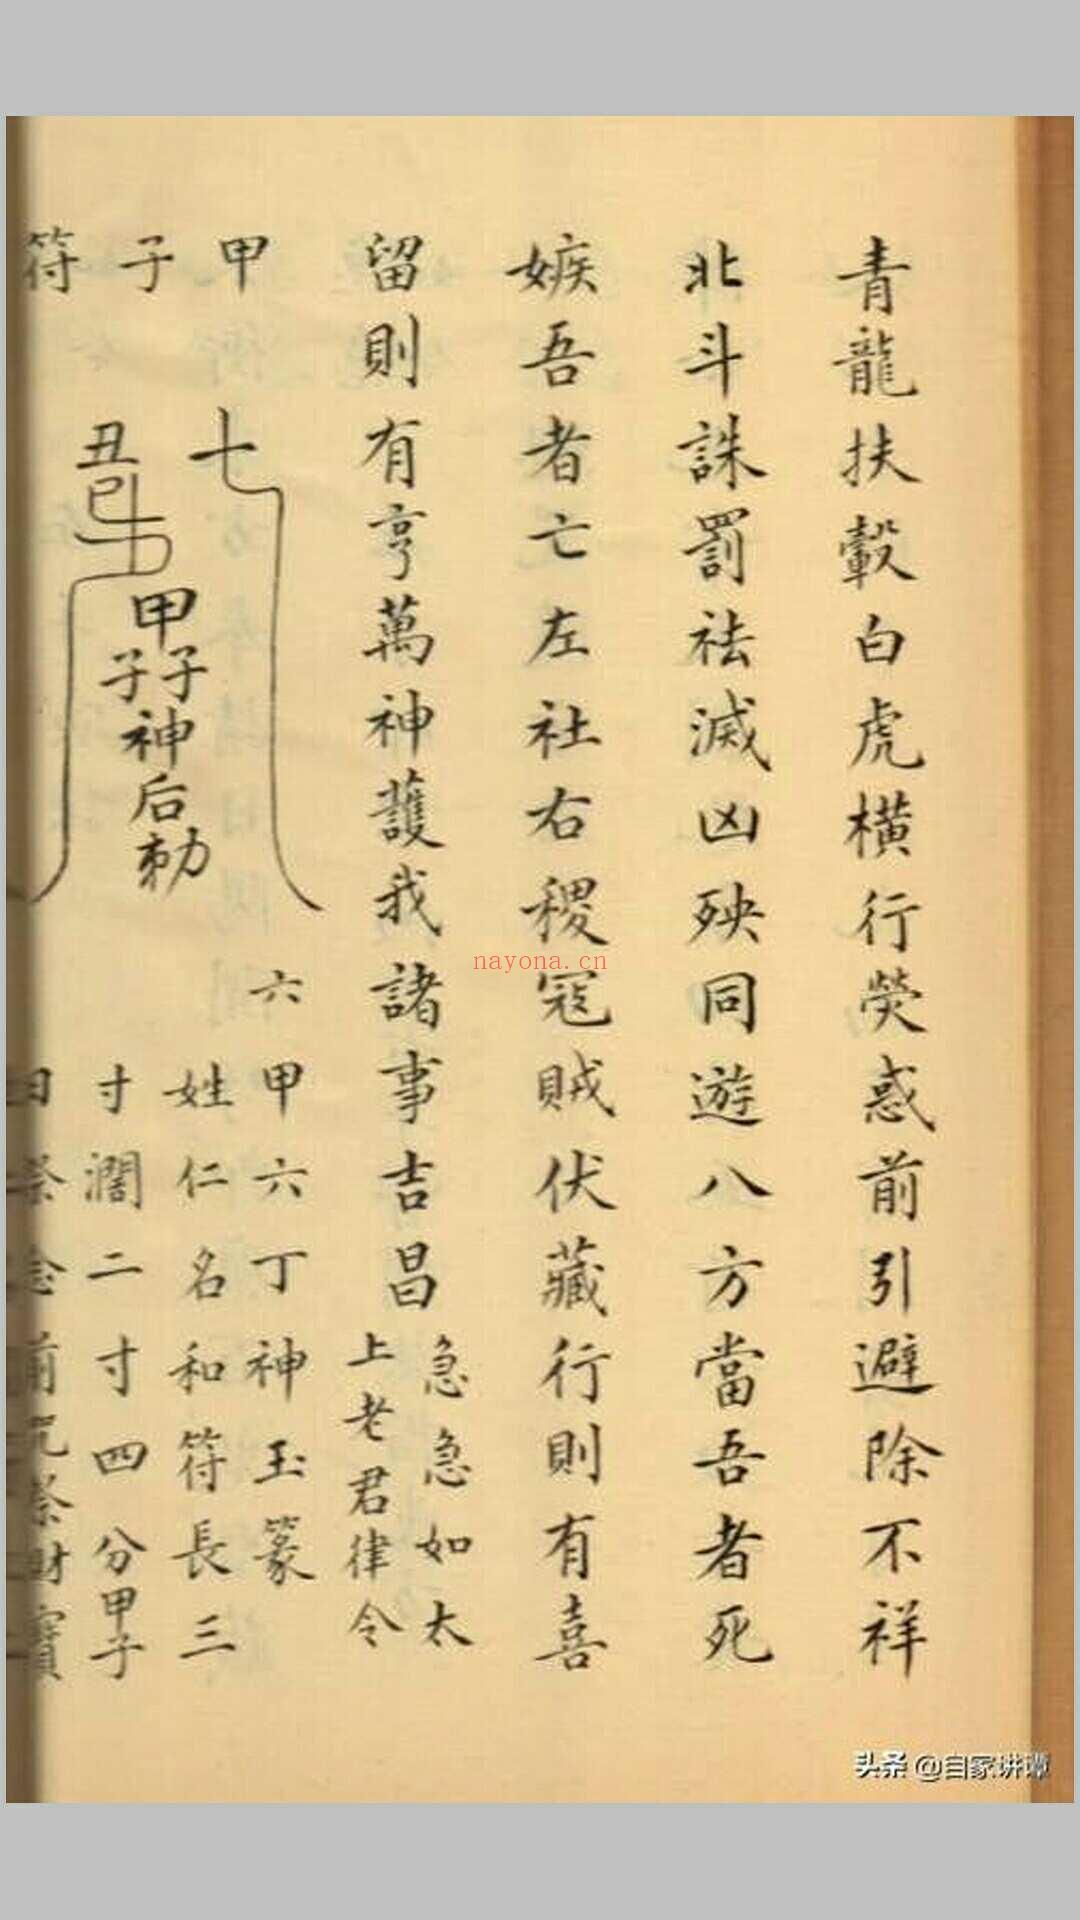 青龍扶轂白虎橫行熒惑前引避除不祥
北斗誅罰祛滅凶殃同遊八方當吾者死
嫉吾者亡左社右稷寇賊伏藏行則有喜
留則有亨萬神護我諸事吉昌
急急如太
上老君律令
甲子符
七
丑
甲
子子
神
后
勅
六甲六丁神玉篆
姓仁名和符長三
寸濶二寸四分甲子
日祭念前咒祭財寶
nayona.cn
头条 @自家讲谭